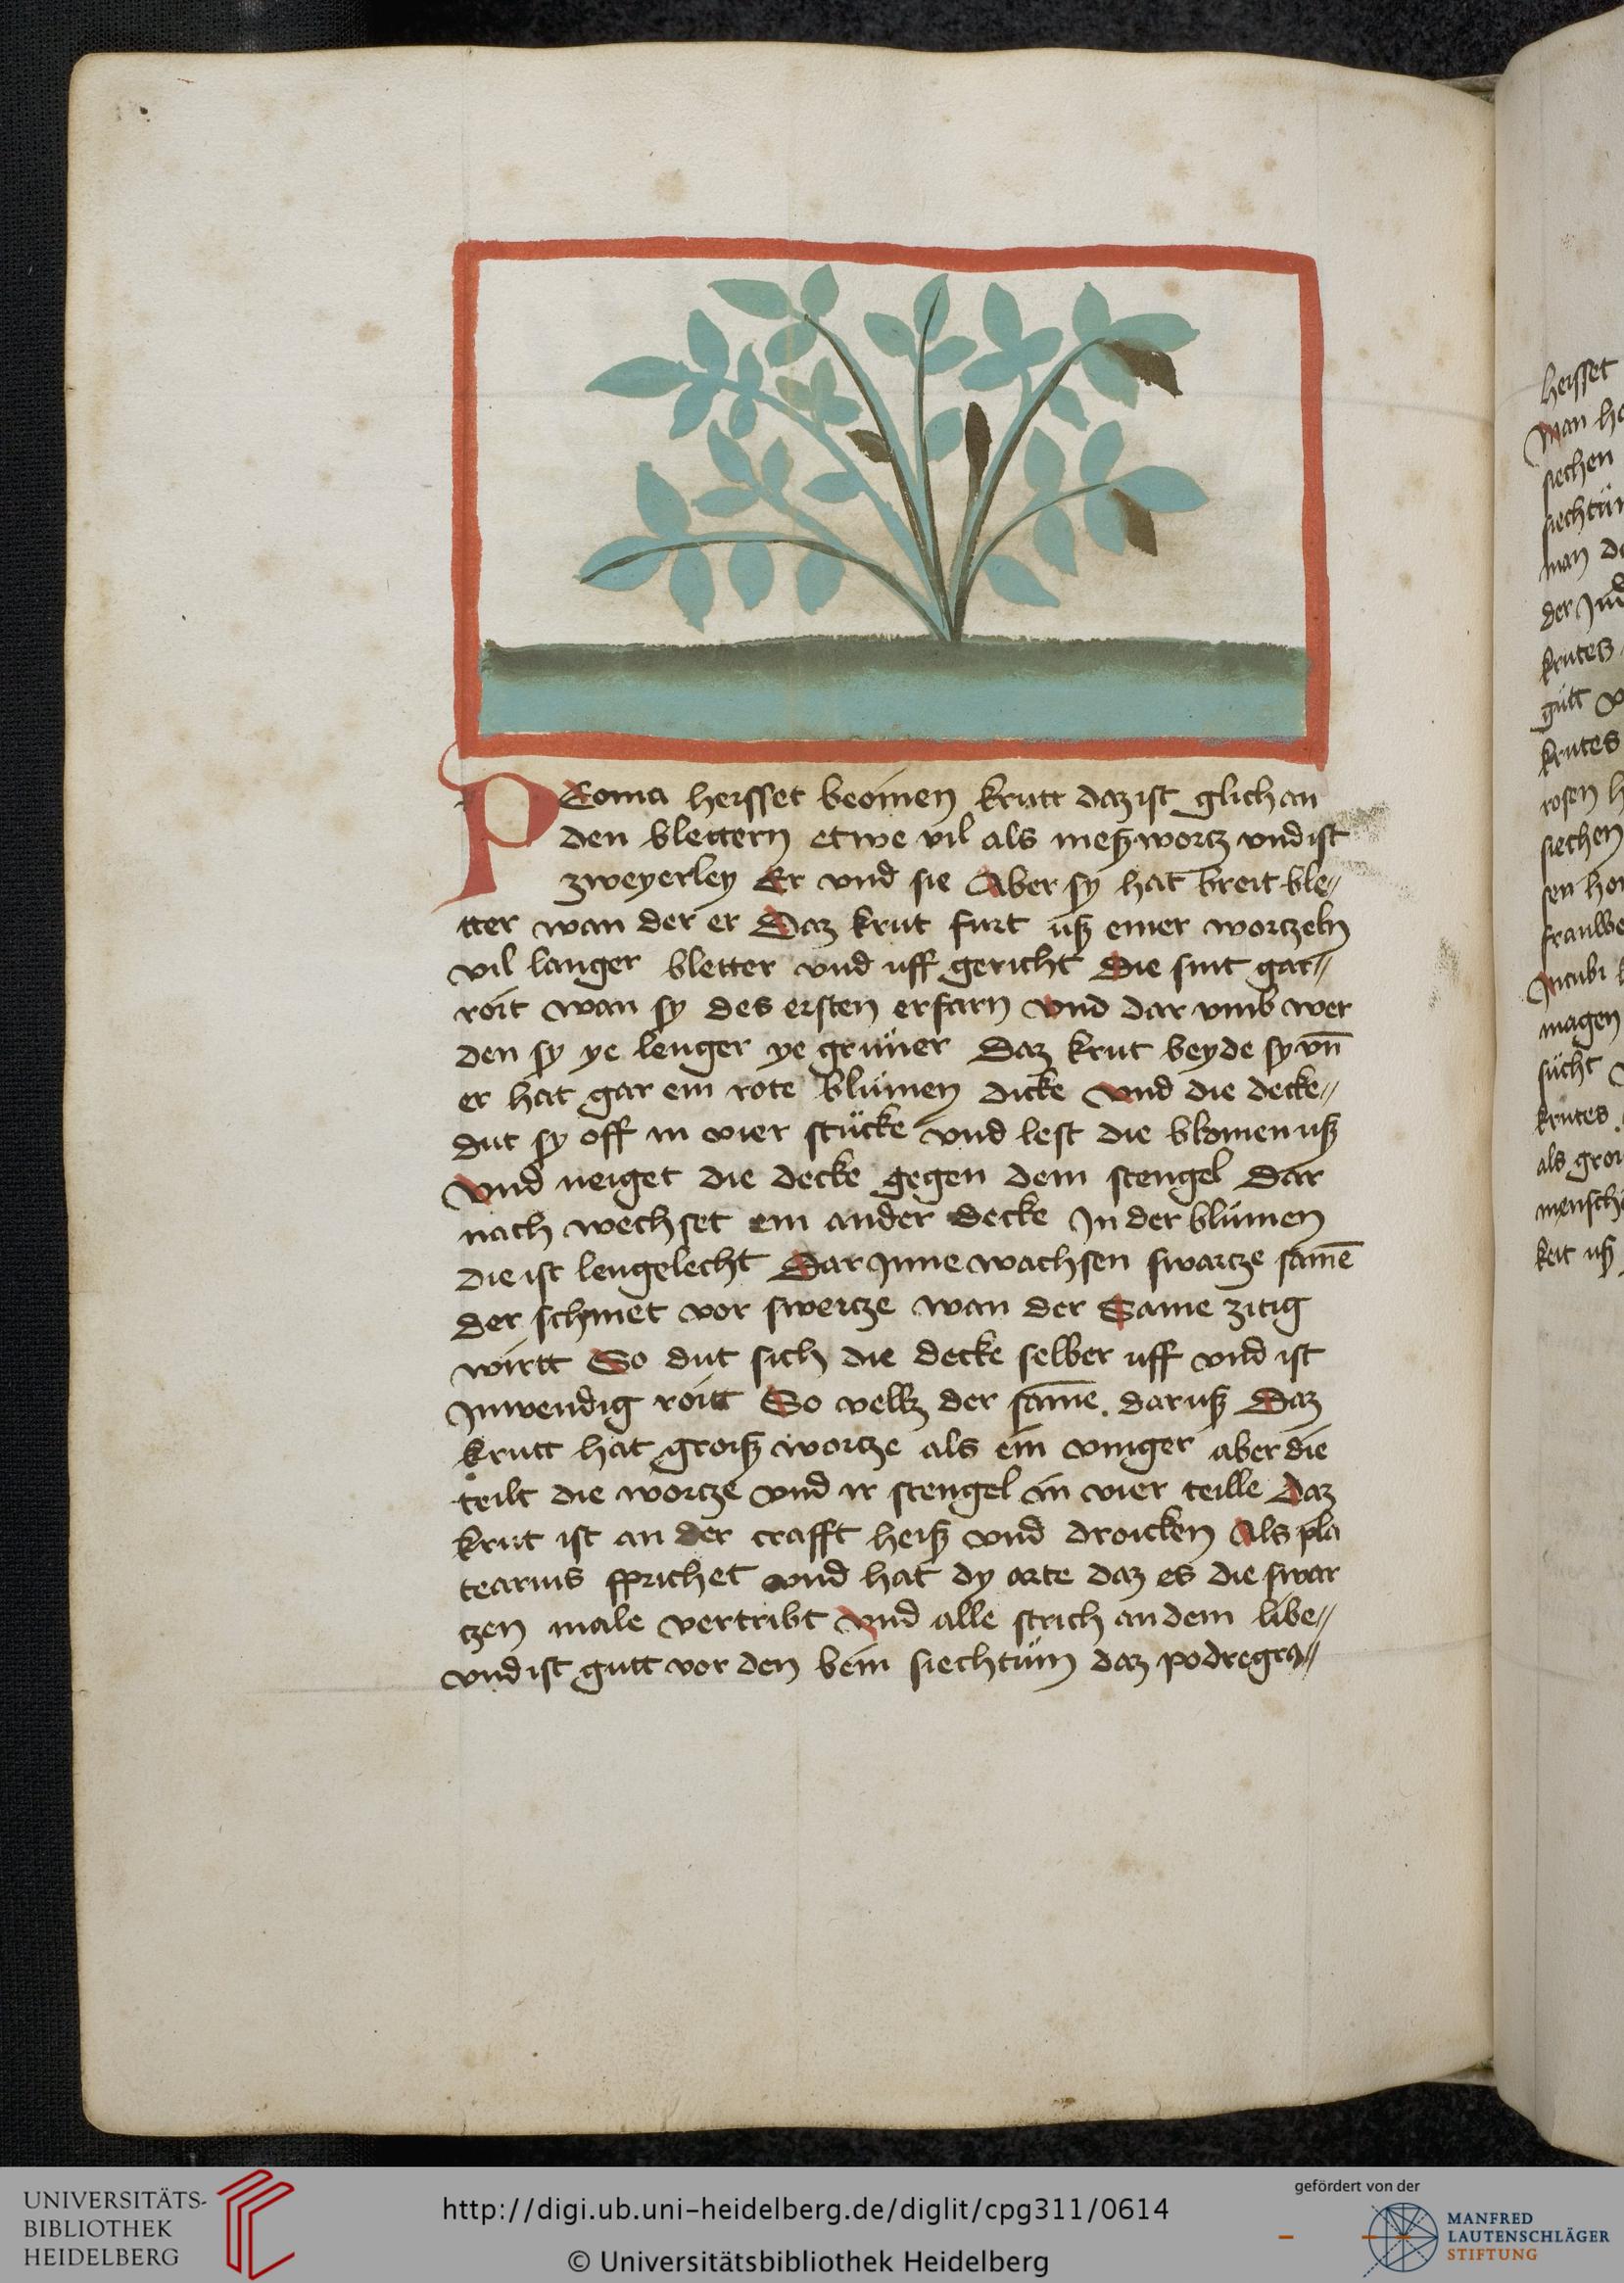 PEoma heisset beoinen krutt daz ist glich an
den blettern etwe vil als meß wortz vnd ist
zweyerley Er vnd sie Aber sy hat breit ble//
tter wan der er Daz krut furt uß einer wortzeln
vil langer bletter vnd uff gericht Die sint gar//
roit wan sy des ersten erfarn Vnd dar vmb wer
den sy ye lenger ye gruner Daz krut beyde sy vn̄
er hat gar ein rote blumen dicke Vnd die decke//
dut sy off in vier stücke vnd lest die blomen uß
Vnd neiget die decke gegen dem stengel Dar
nach wechset ein ander decke In der blümen
die ist lengelecht Dar Inne wachsen swartze samē
der schinet vor swertze wan der Same zitig
wirtt So dut sich die decke selber uff vnd ist
Inwendig roitt So vellz der same. daruß Daz
krutt hat groiß wortze als ein vinger aber die
teilt die wortze vnd ir stengel in vier teille Daz
krut ist an der crafft heiß vnd droicken Als pla
tearius sprichet vnd hat dy arte daz es die swar
tzen male vertribt Vnd alle strich an dem libe//
vnd ist gutt vor den bein siechtüm daz podregra//
heisset
Man
siechen
man
krutes
gutt
krutes
rosen
siechen
magen
sücht
krutes
als
keit uß
UNIVERSITÄTS-
BIBLIOTHEK
HEIDELBERG
http://digi.ub.uni-heidelberg.de/diglit/cpg311/0614
© Universitätsbibliothek Heidelberg
gefördert von der
MANFRED
LAUTENSCHLÄGER
STIFTUNG